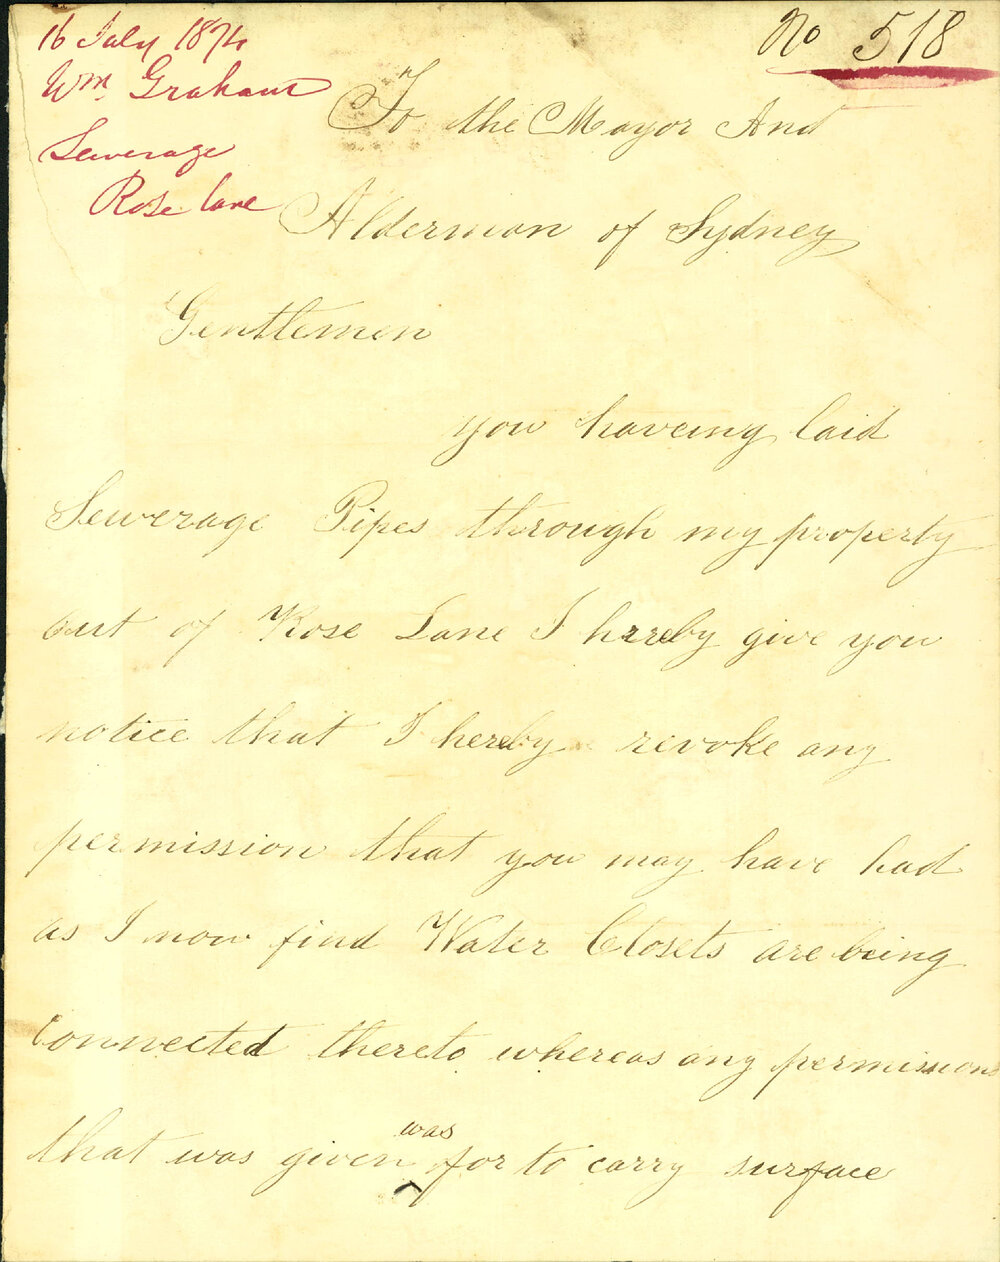 16 July 1874
Wm. Graham
Sewerage
Rose Lane
No 518
To the Mayor And
Alderman of Sydney
Gentlemen
you haveing laid
Sewerage Pipes through my property
out of Rose Lane I hereby give you
notice that I hereby revoke any
permission that you may have had
as I now find Water Closets are being
Connected thereto whereas any permission
that was given was for to carry surface